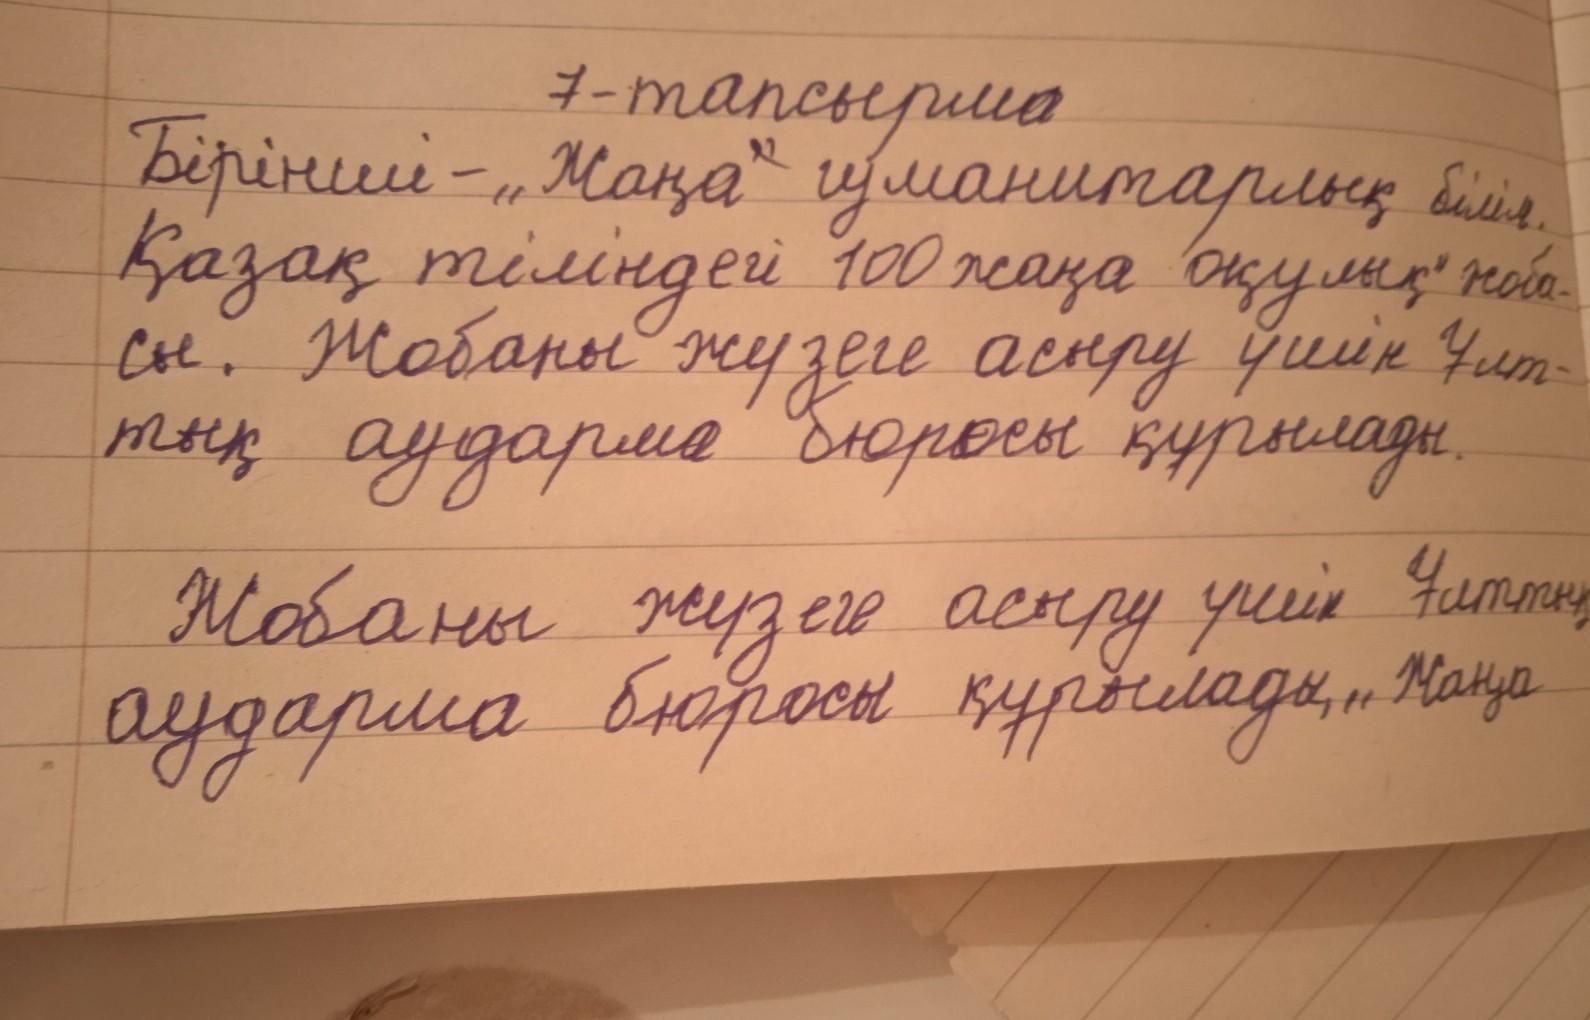 7-тапсырма
Бірінші - „Жаңа" гуманитарлық білім.
Қазақ тіліндегі 100 жаңа оқулық" жоба-
сы. Жобаны жүзеге асыру үшін Ұлт-
тық аударма бюросы құрылады.
Жобаны жүзеге асыру үшін Ұлттық
аударма бюросы құрылады, „Жаңа